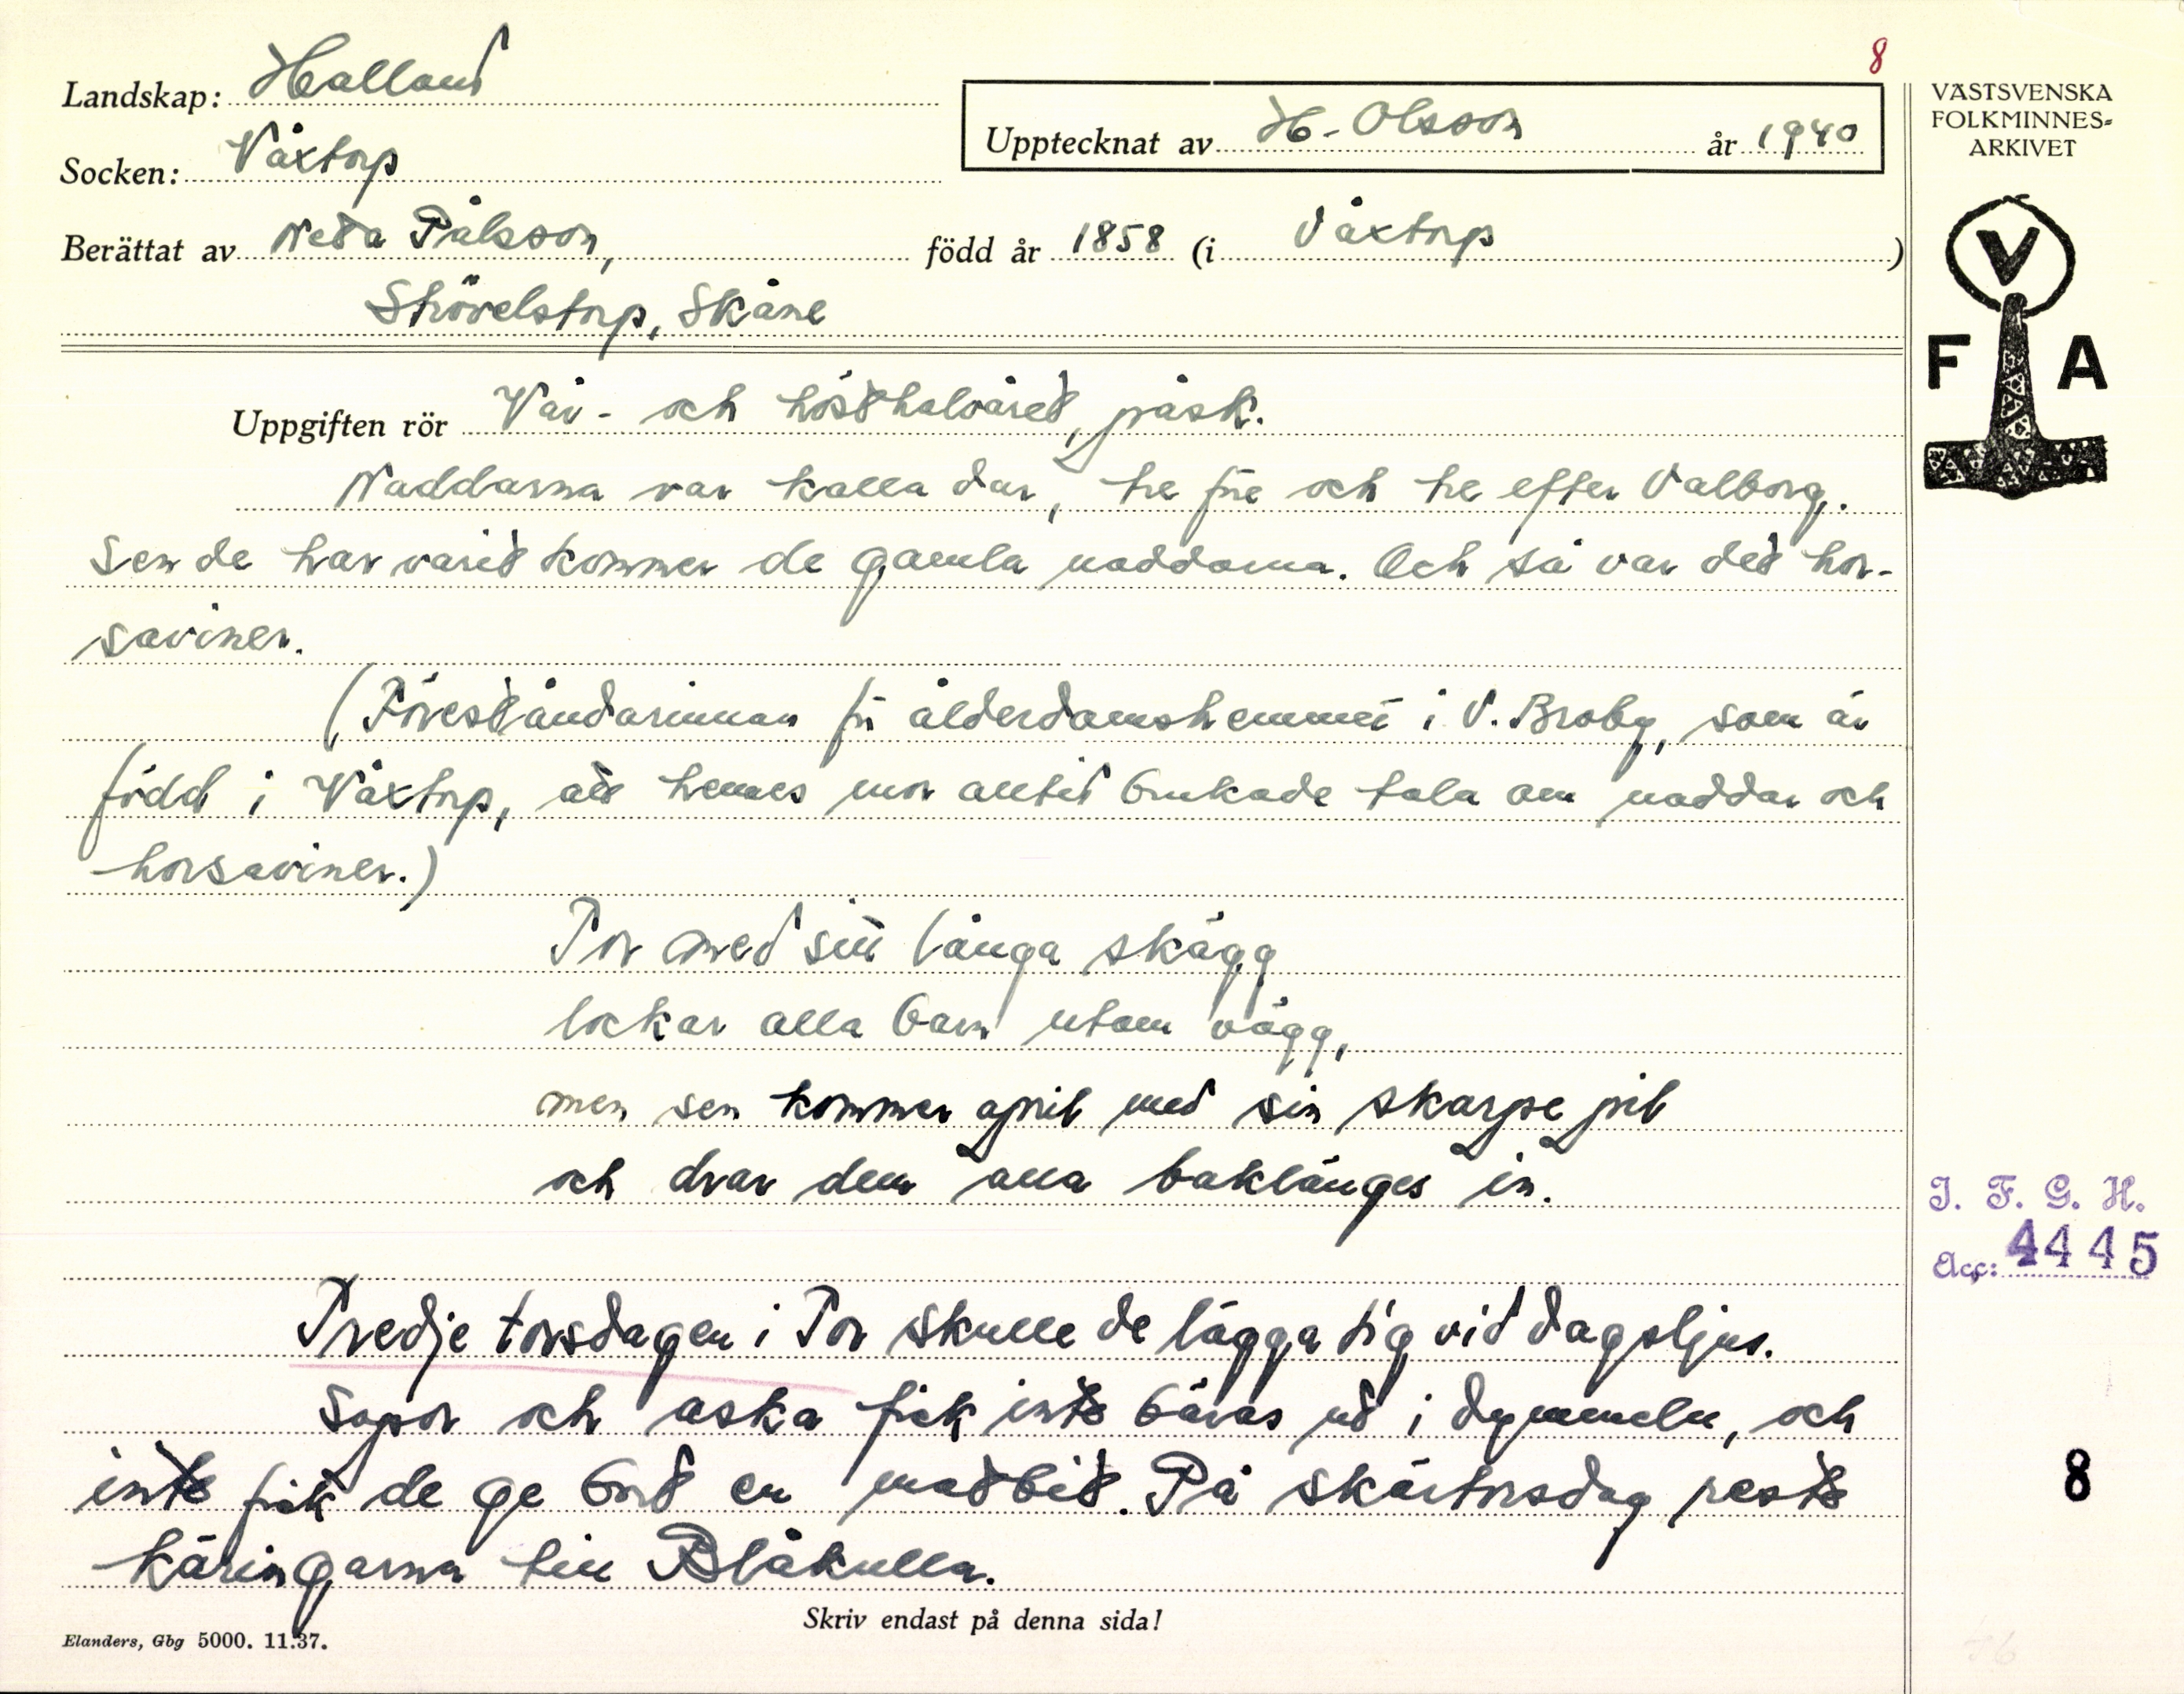 8
Landskap: Halland
Upptecknat av H. Olsson år 1940
Socken: Våxtorp
Berättat av Neta Pålsson, född år 1858 (i Våxtorp)
Strövelstorp, Skåne
VÄSTSVENSKA
FOLKMINNES=
ARKIVET
V
F A
Uppgiften rör Vår- och hösthalvåret, påsk.
Naddarna var kalla dar, tre före och tre efter Valborg.
Sen de har varit kommer de gamla naddarna. Och så var det hor-
saviner.
(Föreståndarinnan för ålderdomshemmet i V. Broby, som är
född i Våxtorp, att hennes mor alltid brukade tala om naddar och
horsaviner.)
Tor med sitt långa skägg
lockar alla barn utom vägg,
men sen kommer april med sin skarpe pil
och drar dem alla baklänges in.
Tredje torsdagen i Tor skulle de lägga sig vid dagsljus.
Sopor och aska fick inte bäras ut i dymmeln, och
inte fick de ge bort en matbit. På skärtorsdag reste
käringarna till Blåkulla.
I. F. G. H.
Acc: 4445
8
Skriv endast på denna sida!
Elanders, Gbg 5000. 11.37.